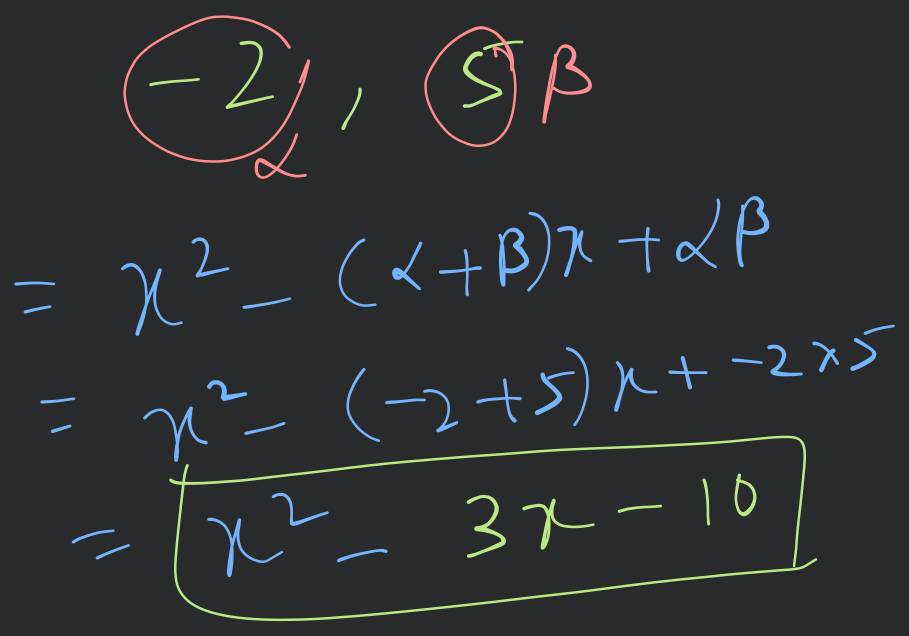 -2 α, 5 β
= x² - (α+β)x + αβ
= x² - (-2+5)x + -2×5
= x² - 3x - 10